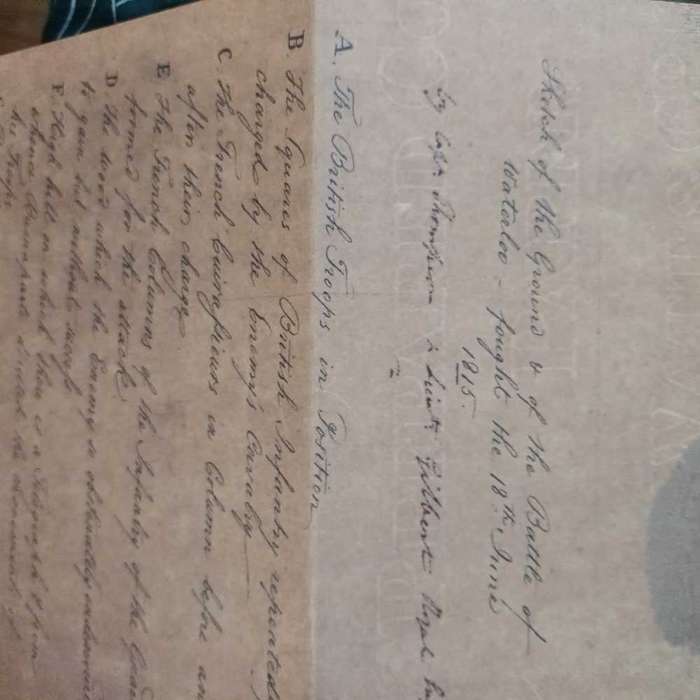 Sketch of the Ground & of the Battle of
Waterloo - fought the 18th June
1815.
by Capt Thompson & Lieut Gilbert Royal
A. The British Troops in Position
B. The Squares of British Infantry repeatedly
charged by the Enemy's Cavalry
C. The French Cuirassiers in Column before and
after their charge
E The French Columns of the Infantry of the Guard
formed for the attack
D The wood which the Enemy so obstinately endeavoured
to gain but without success
F. High hill on which there is a Telegraph & from
whence Buonaparte directed the movements of
his Troops